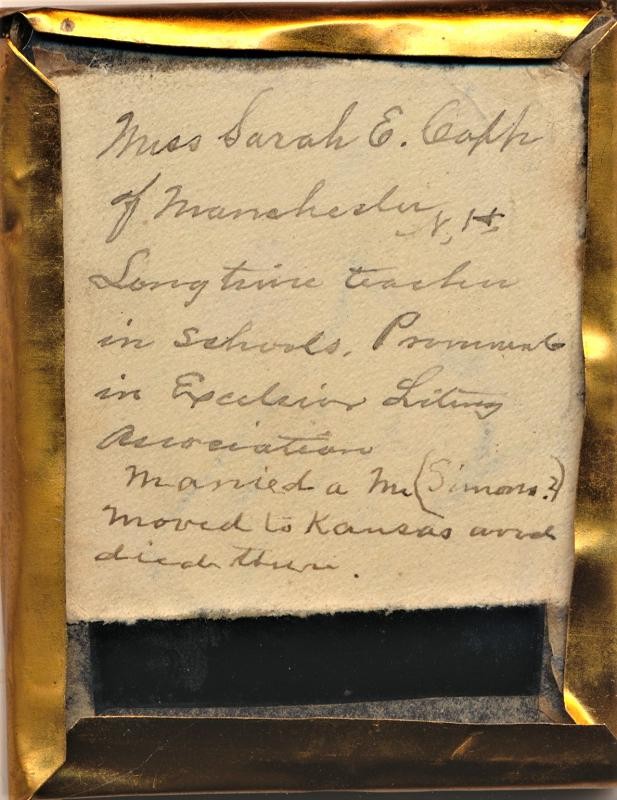 Miss Sarah E. Copp
of Manchester N.H.
Longtime teacher
in schools. Prominent
in Excelsior Litrary
Association
Married a Mr (Simons?)
moved to Kansas and
died there.